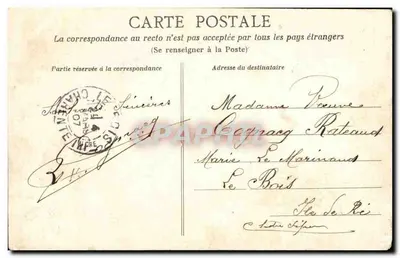 CARTE POSTALE
La correspondance au recto n'est pas acceptée par tous les pays étrangers
(Se renseigner à la Poste)
Partie réservée à la correspondance
Adresse du destinataire
Madame Veuve
Rateaud
Marie Le
Le Bois
Ile de Ré
07